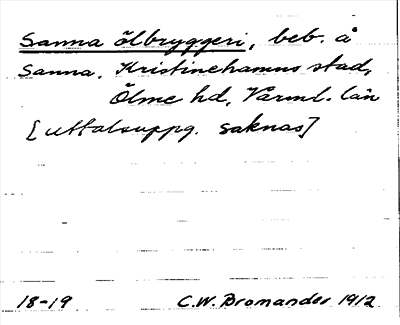 Sanna ölbryggeri, beb. å
Sanna. Kristinehamns stad,
Ölme hd, Värml. län
[uttalsuppg. saknas]
18-19 C.W. Bromander 1912